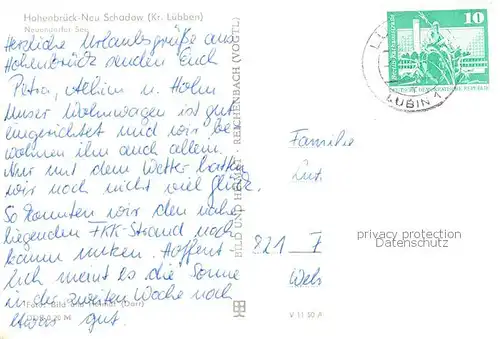 Hohenbrück-Neu Schadow (Kr. Lübben)
Neuendorfer See
Herzliche Urlaubsgrüße aus
Hohenbrück senden Euch
Petra, Achim u. Holm
Unser Wohnwagen ist gut
eingerichtet und wir be-
wohnen ihn auch allein.
Nur mit dem Wetter hatten
wir noch nicht viel Glück.
So konnten wir den nahe
liegenden FKK-Strand noch
kaum nutzen. Hoffent-
lich meint es die Sonne
in der zweiten Woche noch
etwas gut.
Foto: Bild und Heimat (Dorf)
DDR 0,20 M
BILD UND HEIMAT · REICHENBACH (VOGTL)
V 11 50 A
10
DEUTSCHE DEMOKRATISCHE REPUBLIK
LUBIN 1
Familie
Lutz
821 F
Wels
privacy protection
Datenschutz